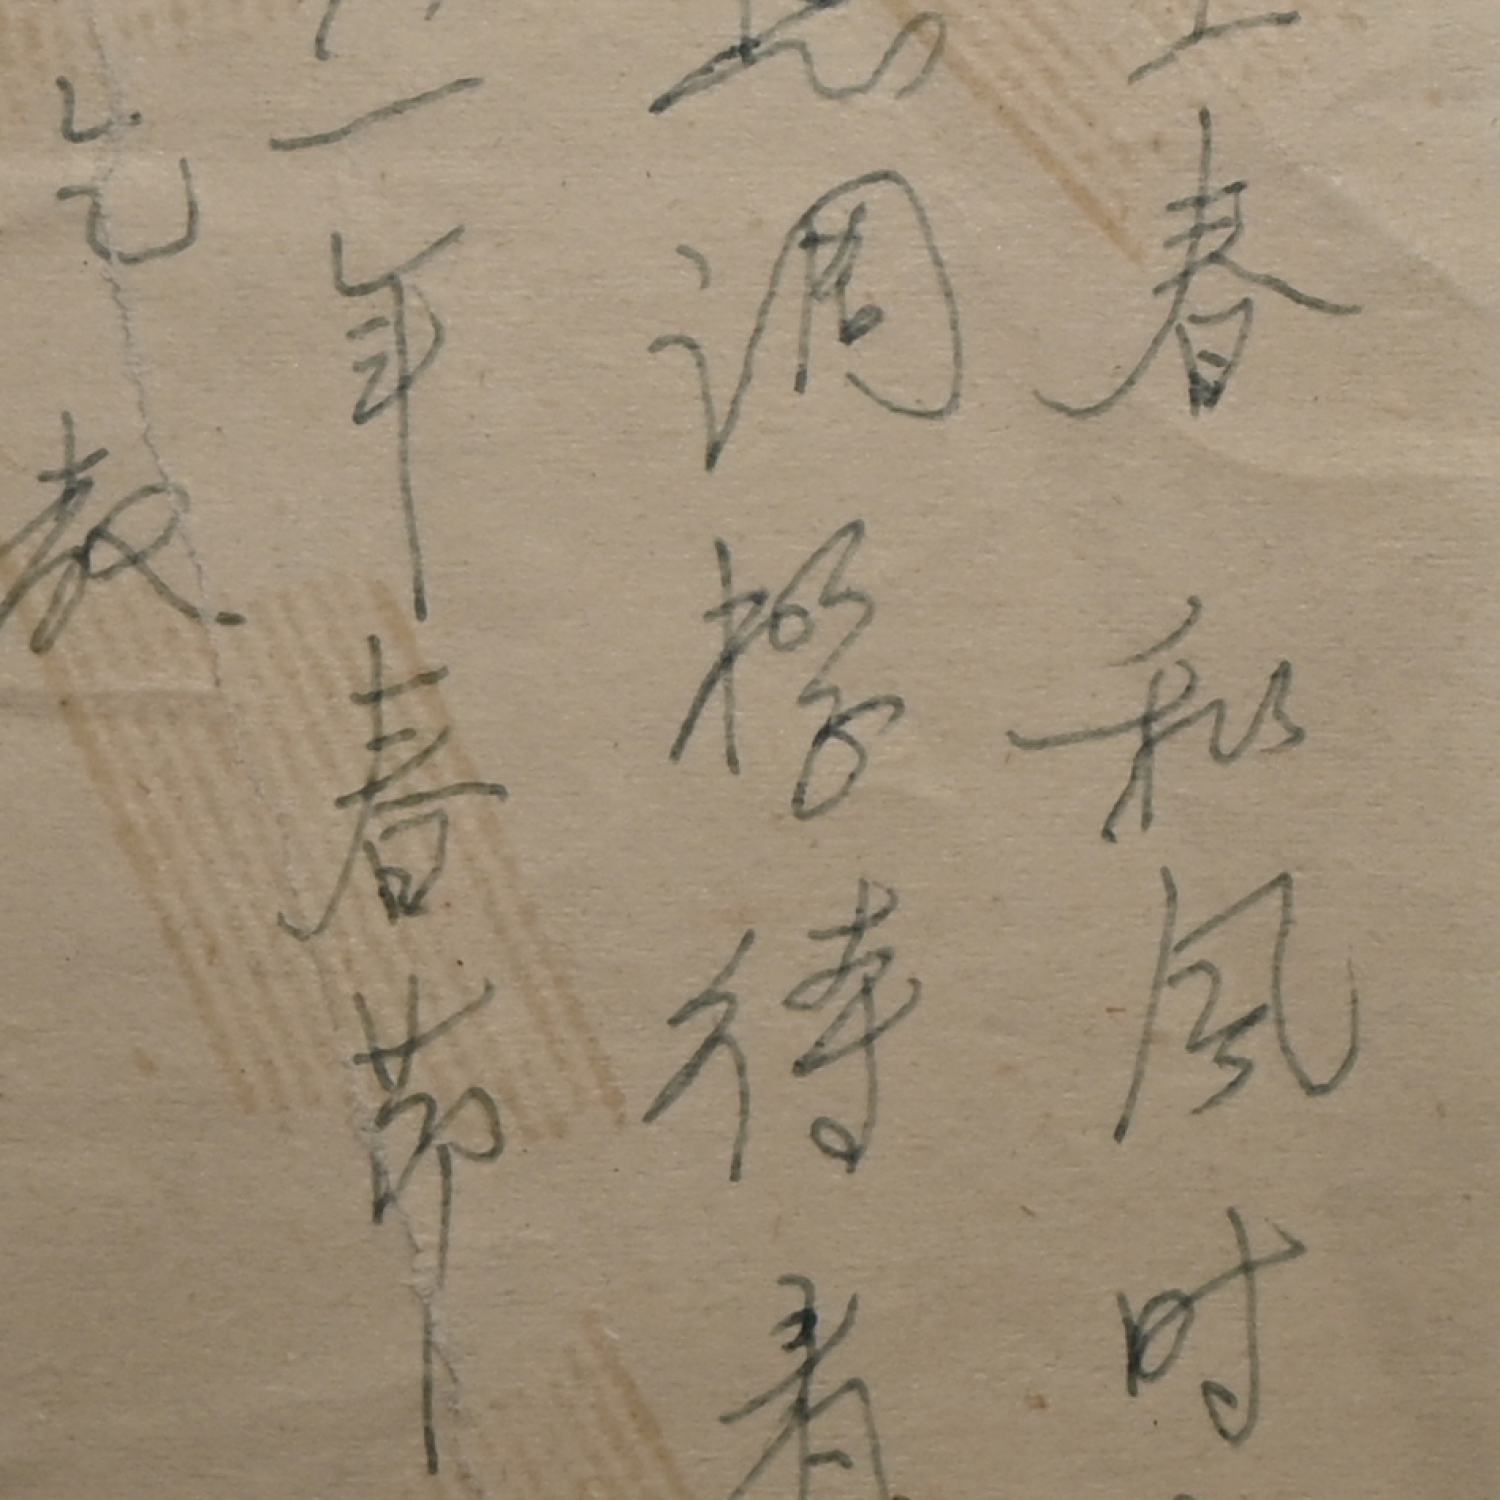 春和风时
调整待看
一年春节
乞教